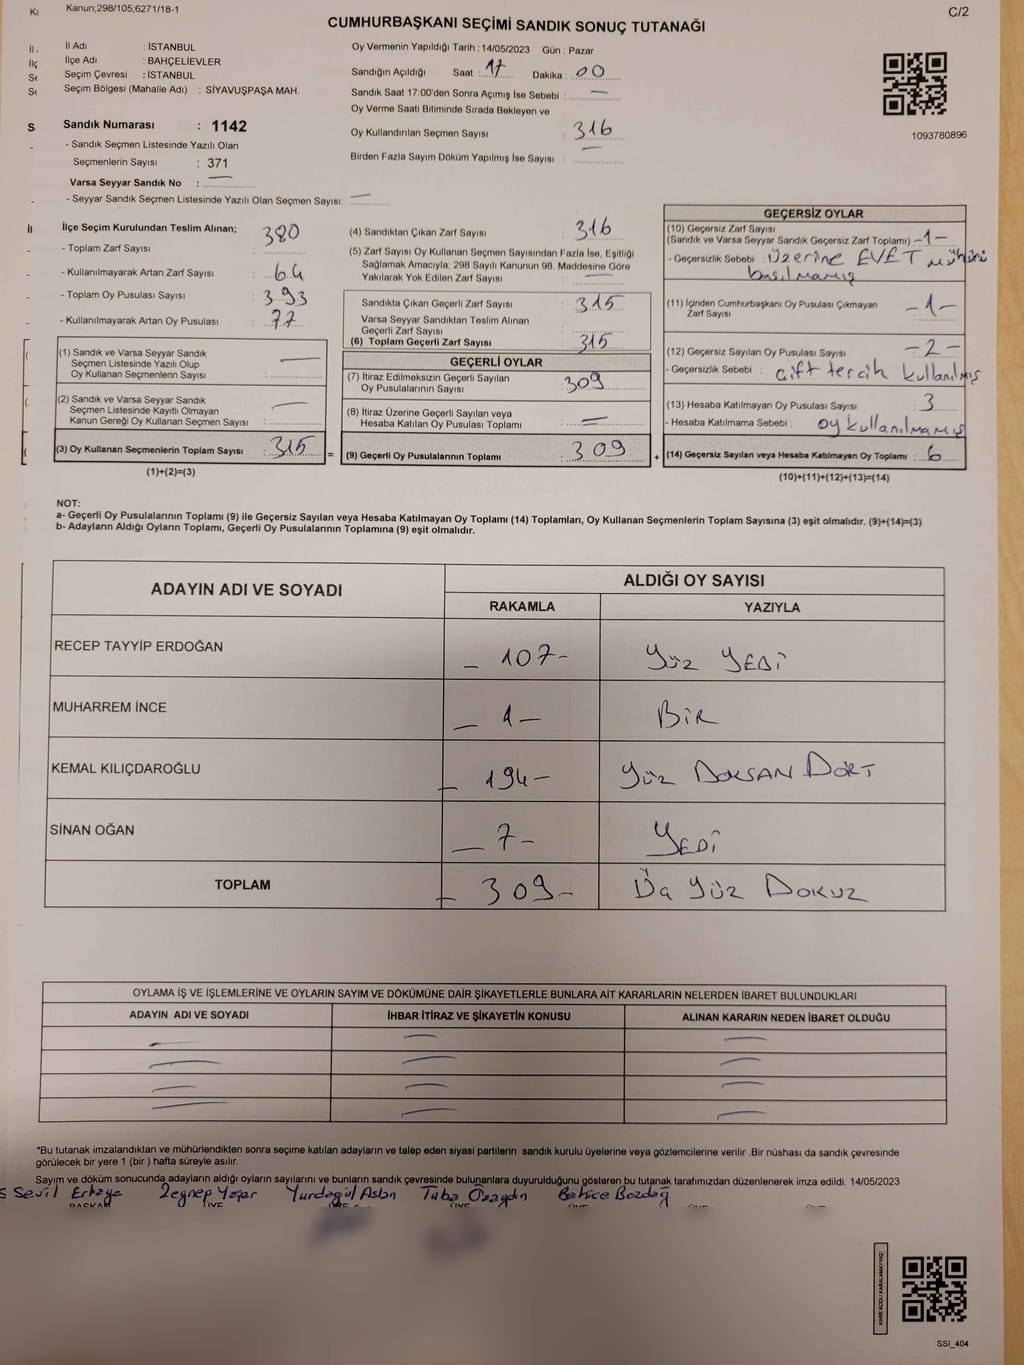 Kanun;298/105;6271/18-1
C/2
CUMHURBAŞKANI SEÇİMİ SANDIK SONUÇ TUTANAĞI
İl Adı : İSTANBUL
İlçe Adı : BAHÇELİEVLER
Seçim Çevresi : İSTANBUL
Seçim Bölgesi (Mahalle Adı) : SİYAVUŞPAŞA MAH.
Sandık Numarası : 1142
- Sandık Seçmen Listesinde Yazılı Olan
Seçmenlerin Sayısı : 371
Varsa Seyyar Sandık No : —
- Seyyar Sandık Seçmen Listesinde Yazılı Olan Seçmen Sayısı: —
Oy Vermenin Yapıldığı Tarih : 14/05/2023 Gün : Pazar
Sandığın Açıldığı Saat : 17 Dakika : 00
Sandık Saat 17:00'den Sonra Açımış İse Sebebi : —
Oy Verme Saati Bitiminde Sırada Bekleyen ve
Oy Kullandırılan Seçmen Sayısı : 316
Birden Fazla Sayım Döküm Yapılmış İse Sayısı : —
1093780896
İlçe Seçim Kurulundan Teslim Alınan;
- Toplam Zarf Sayısı : 380
- Kullanılmayarak Artan Zarf Sayısı : 64
- Toplam Oy Pusulası Sayısı : 393
- Kullanılmayarak Artan Oy Pusulası : 77
(1) Sandık ve Varsa Seyyar Sandık
Seçmen Listesinde Yazılı Olup
Oy Kullanan Seçmenlerin Sayısı : —
(2) Sandık ve Varsa Seyyar Sandık
Seçmen Listesinde Kayıtlı Olmayan
Kanun Gereği Oy Kullanan Seçmen Sayısı : —
(3) Oy Kullanan Seçmenlerin Toplam Sayısı : 315 =
(1)+(2)=(3)
(4) Sandıktan Çıkan Zarf Sayısı : 316
(5) Zarf Sayısı Oy Kullanan Seçmen Sayısından Fazla İse, Eşitliği
Sağlamak Amacıyla, 298 Sayılı Kanunun 98. Maddesine Göre
Yakılarak Yok Edilen Zarf Sayısı : —
Sandıkta Çıkan Geçerli Zarf Sayısı : 315
Varsa Seyyar Sandıktan Teslim Alınan
Geçerli Zarf Sayısı
(6) Toplam Geçerli Zarf Sayısı : 315
GEÇERLİ OYLAR
(7) İtiraz Edilmeksizin Geçerli Sayılan
Oy Pusulalarının Sayısı : 309
(8) İtiraz Üzerine Geçerli Sayılan veya
Hesaba Katılan Oy Pusulası Toplamı : —
(9) Geçerli Oy Pusulalarının Toplamı : 309 +
GEÇERSİZ OYLAR
(10) Geçersiz Zarf Sayısı
(Sandık ve Varsa Seyyar Sandık Geçersiz Zarf Toplamı) -1-
- Geçersizlik Sebebi : üzerine EVET mührü
basılmamış
(11) İçinden Cumhurbaşkanı Oy Pusulası Çıkmayan
Zarf Sayısı -1-
(12) Geçersiz Sayılan Oy Pusulası Sayısı -2-
- Geçersizlik Sebebi : çift tercih kullanılmış
(13) Hesaba Katılmayan Oy Pusulası Sayısı : 3
- Hesaba Katılmama Sebebi : oy kullanılmamış
(14) Geçersiz Sayılan veya Hesaba Katılmayan Oy Toplamı : 6
(10)+(11)+(12)+(13)=(14)
NOT:
a- Geçerli Oy Pusulalarının Toplamı (9) ile Geçersiz Sayılan veya Hesaba Katılmayan Oy Toplamı (14) Toplamları, Oy Kullanan Seçmenlerin Toplam Sayısına (3) eşit olmalıdır. (9)+(14)=(3)
b- Adayların Aldığı Oyların Toplamı, Geçerli Oy Pusulalarının Toplamına (9) eşit olmalıdır.
ADAYIN ADI VE SOYADI
ALDIĞI OY SAYISI
RAKAMLA YAZIYLA
RECEP TAYYİP ERDOĞAN - 107 - Yüz YEDİ
MUHARREM İNCE - 1 - BİR
KEMAL KILIÇDAROĞLU - 194 - Yüz DOKSAN DÖRT
SİNAN OĞAN - 7 - YEDİ
TOPLAM - 309 - Üç Yüz DOKUZ
OYLAMA İŞ VE İŞLEMLERİNE VE OYLARIN SAYIM VE DÖKÜMÜNE DAİR ŞİKAYETLERLE BUNLARA AİT KARARLARIN NELERDEN İBARET BULUNDUKLARI
ADAYIN ADI VE SOYADI İHBAR İTİRAZ VE ŞİKAYETİN KONUSU ALINAN KARARIN NEDEN İBARET OLDUĞU
*Bu tutanak imzalandıktan ve mühürlendikten sonra seçime katılan adayların ve talep eden siyasi partilerin sandık kurulu üyelerine veya gözlemcilerine verilir .Bir nüshası da sandık çevresinde
görülecek bir yere 1 (bir ) hafta süreyle asılır.
Sayım ve döküm sonucunda adayların aldığı oyların sayılarını ve bunların sandık çevresinde bulunanlara duyurulduğunu gösteren bu tutanak tarafımızdan düzenlenerek imza edildi. 14/05/2023
Sevil Erkaya Zeynep Yaşar Yurdagül Aslan Tuba Özaydın Behice Bozdağ
BAŞKAN ÜYE
KARE KODU KARALAMAYINIZ!
SSI_404